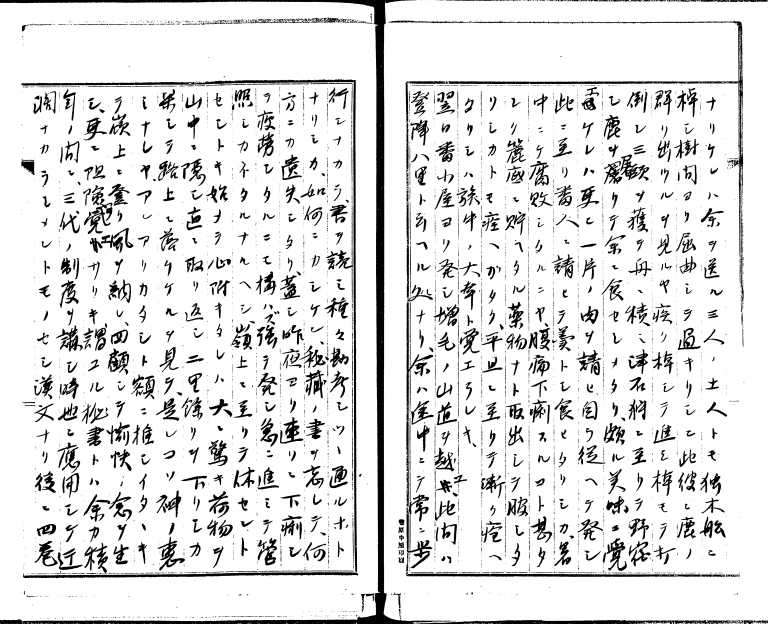 ナリケレハ余ヲ送ル三人ノ土人トモ独木船ニ
棹シ樹間ヨリ屈曲シテ過キリシニ此彼ニ鹿ノ
群リ出ツルヲ見ルヤ疾ク棹シテ進ミ棹モテ打
倒シ三頭ヲ獲テ舟ニ積ミ津石狩ニ至リテ野宿
シ鹿ヲ屠リテ余ニ食セシメタリ、頗ル美味ニ覚
エケレハ更ニ一片ノ肉ヲ請ヒ自ラ従ヘテ発シ
此ニ至リ番人ニ請ヒテ羹トシ食ヒタリシカ、暑
中ニテ腐敗シタルニヤ腹痛下痢スルコト甚タ
シク籠底ニ貯ヘタル薬物ナト取出シテ服シタ
リシカトモ癒ヘガタク、平旦ニ至リテ漸ク癒ヘ
タリシハ旅中ノ大幸ト覚エラレキ、
翌日番小屋ヨリ発シ増毛ノ山道ヲ越ユ、此間ハ
登降八里ト云ヘル処ナリ、余ハ途中ニテ常ニ歩
行シナカラ、書ヲ読ミ種々勘考シツヽ通ルホト
ナリシカ、如何ニカシケン秘蔵ノ書ヲ忘レテ、何
方ニカ遺失シタリ、蓋シ昨夜ヨリ連リニ下痢シ
テ疲労シタルニモ構ハズ強テ発シ急ニ進ミテ管
照シカネタルナルヘシ、嶺上ニ至リテ休セント
セントキ始メテ心附キタレハ大ニ驚キ荷物ヲ
山中ニ隠シ直ニ取リ返シ二里餘リヲ下リシカ
果シテ路上ニ落ケケルヲ見テ是レコソ神ノ恵
ミナレヤアレアリカタシト額ニ推シイタヽキ
テ嶺上ニ登リ風ヲ納レ四顧シテ愉快ノ念ヲ生
シ、更ニ阻険覚エサリキ謂ユル秘書トハ余カ積
年ノ間ニ三代ノ制度ヲ講シ時世ニ應用シケ迂
濶ナカラシメントモノセシ漢文ナリ後ニ四巻